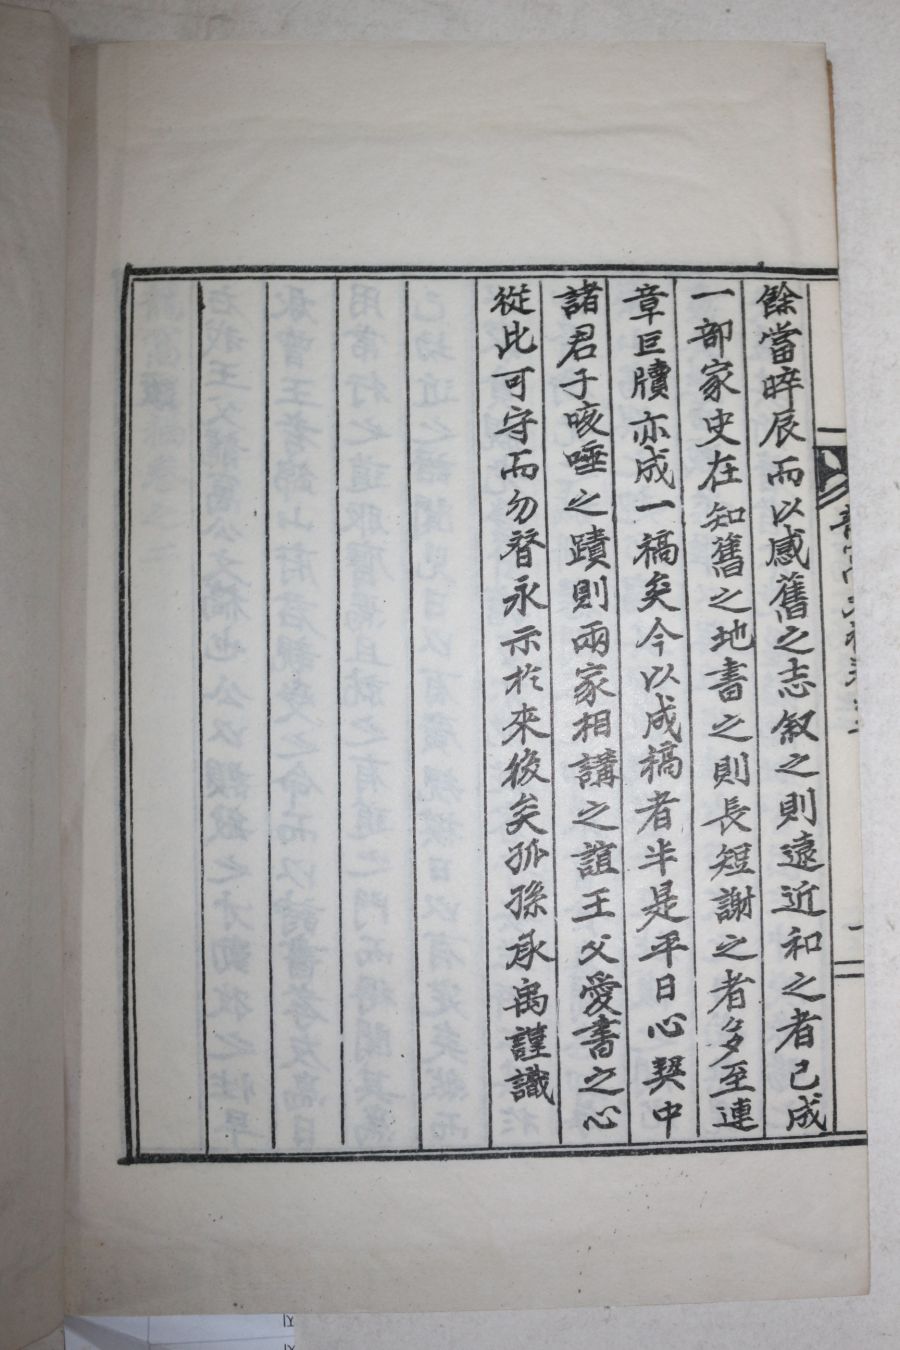 餘當晬辰而以感舊之志叙之則遠近和之者已成
一部家史在知舊之地書之則長短謝之者多至連
章巨牘亦成一稿矣今以成稿者半是平日心契中
諸君子咳唾之蹟則兩家相講之誼王父愛書之心
從此可守而勿替永示於來後矣孤孫承禹謹識